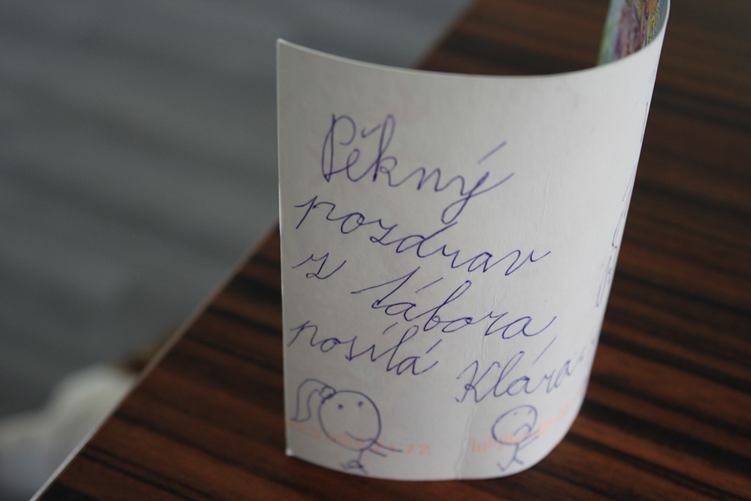 Pěkný
pozdrav
z tábora
posílá Klára